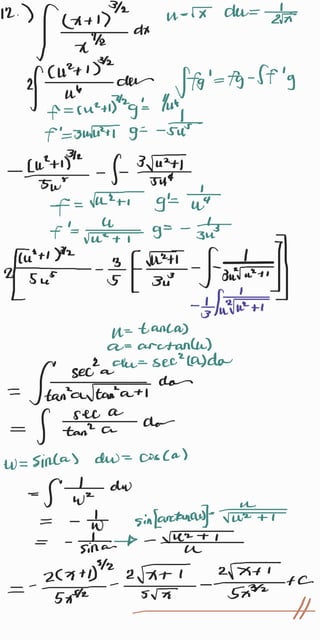 12.) ∫ (x+1)^{3/2} / x^{7/2} dx    u = √x   du = 1/(2√x)
2∫ (u²+1)^{3/2} / u⁶ du    ∫fg' = fg - ∫f'g
f = (u²+1)^{3/2}   g' = 1/u⁶
f' = 3u√(u²+1)   g = - 1/(5u⁵)
- (u²+1)^{3/2} / 5u⁵ - ∫ - 3√(u²+1) / 5u⁴
f = √(u²+1)   g' = 1/u⁴
f' = u/√(u²+1)   g = - 1/(3u³)
2[ (u²+1)^{3/2} / 5u⁵ - 3/5 [ - √(u²+1) / 3u³ - ∫ - 1/(3u²√(u²+1)) ] ]
- 1/3 ∫ 1/(u²√(u²+1))
u = tan(a)
a = arctan(u)
du = sec²(a)da
= ∫ sec²a / (tan²a√(tan²a+1)) da
= ∫ sec a / tan²a da
w = sin(a)   dw = cos(a)
= ∫ 1/w² dw
= - 1/w    sin[arctan(u)] = u/√(u²+1)
= - 1/sin a → - √(u²+1) / u
= - 2(x+1)^{3/2} / 5x^{5/2} - 2√(x+1) / 5√x - 2√(x+1) / 5x^{3/2} + C